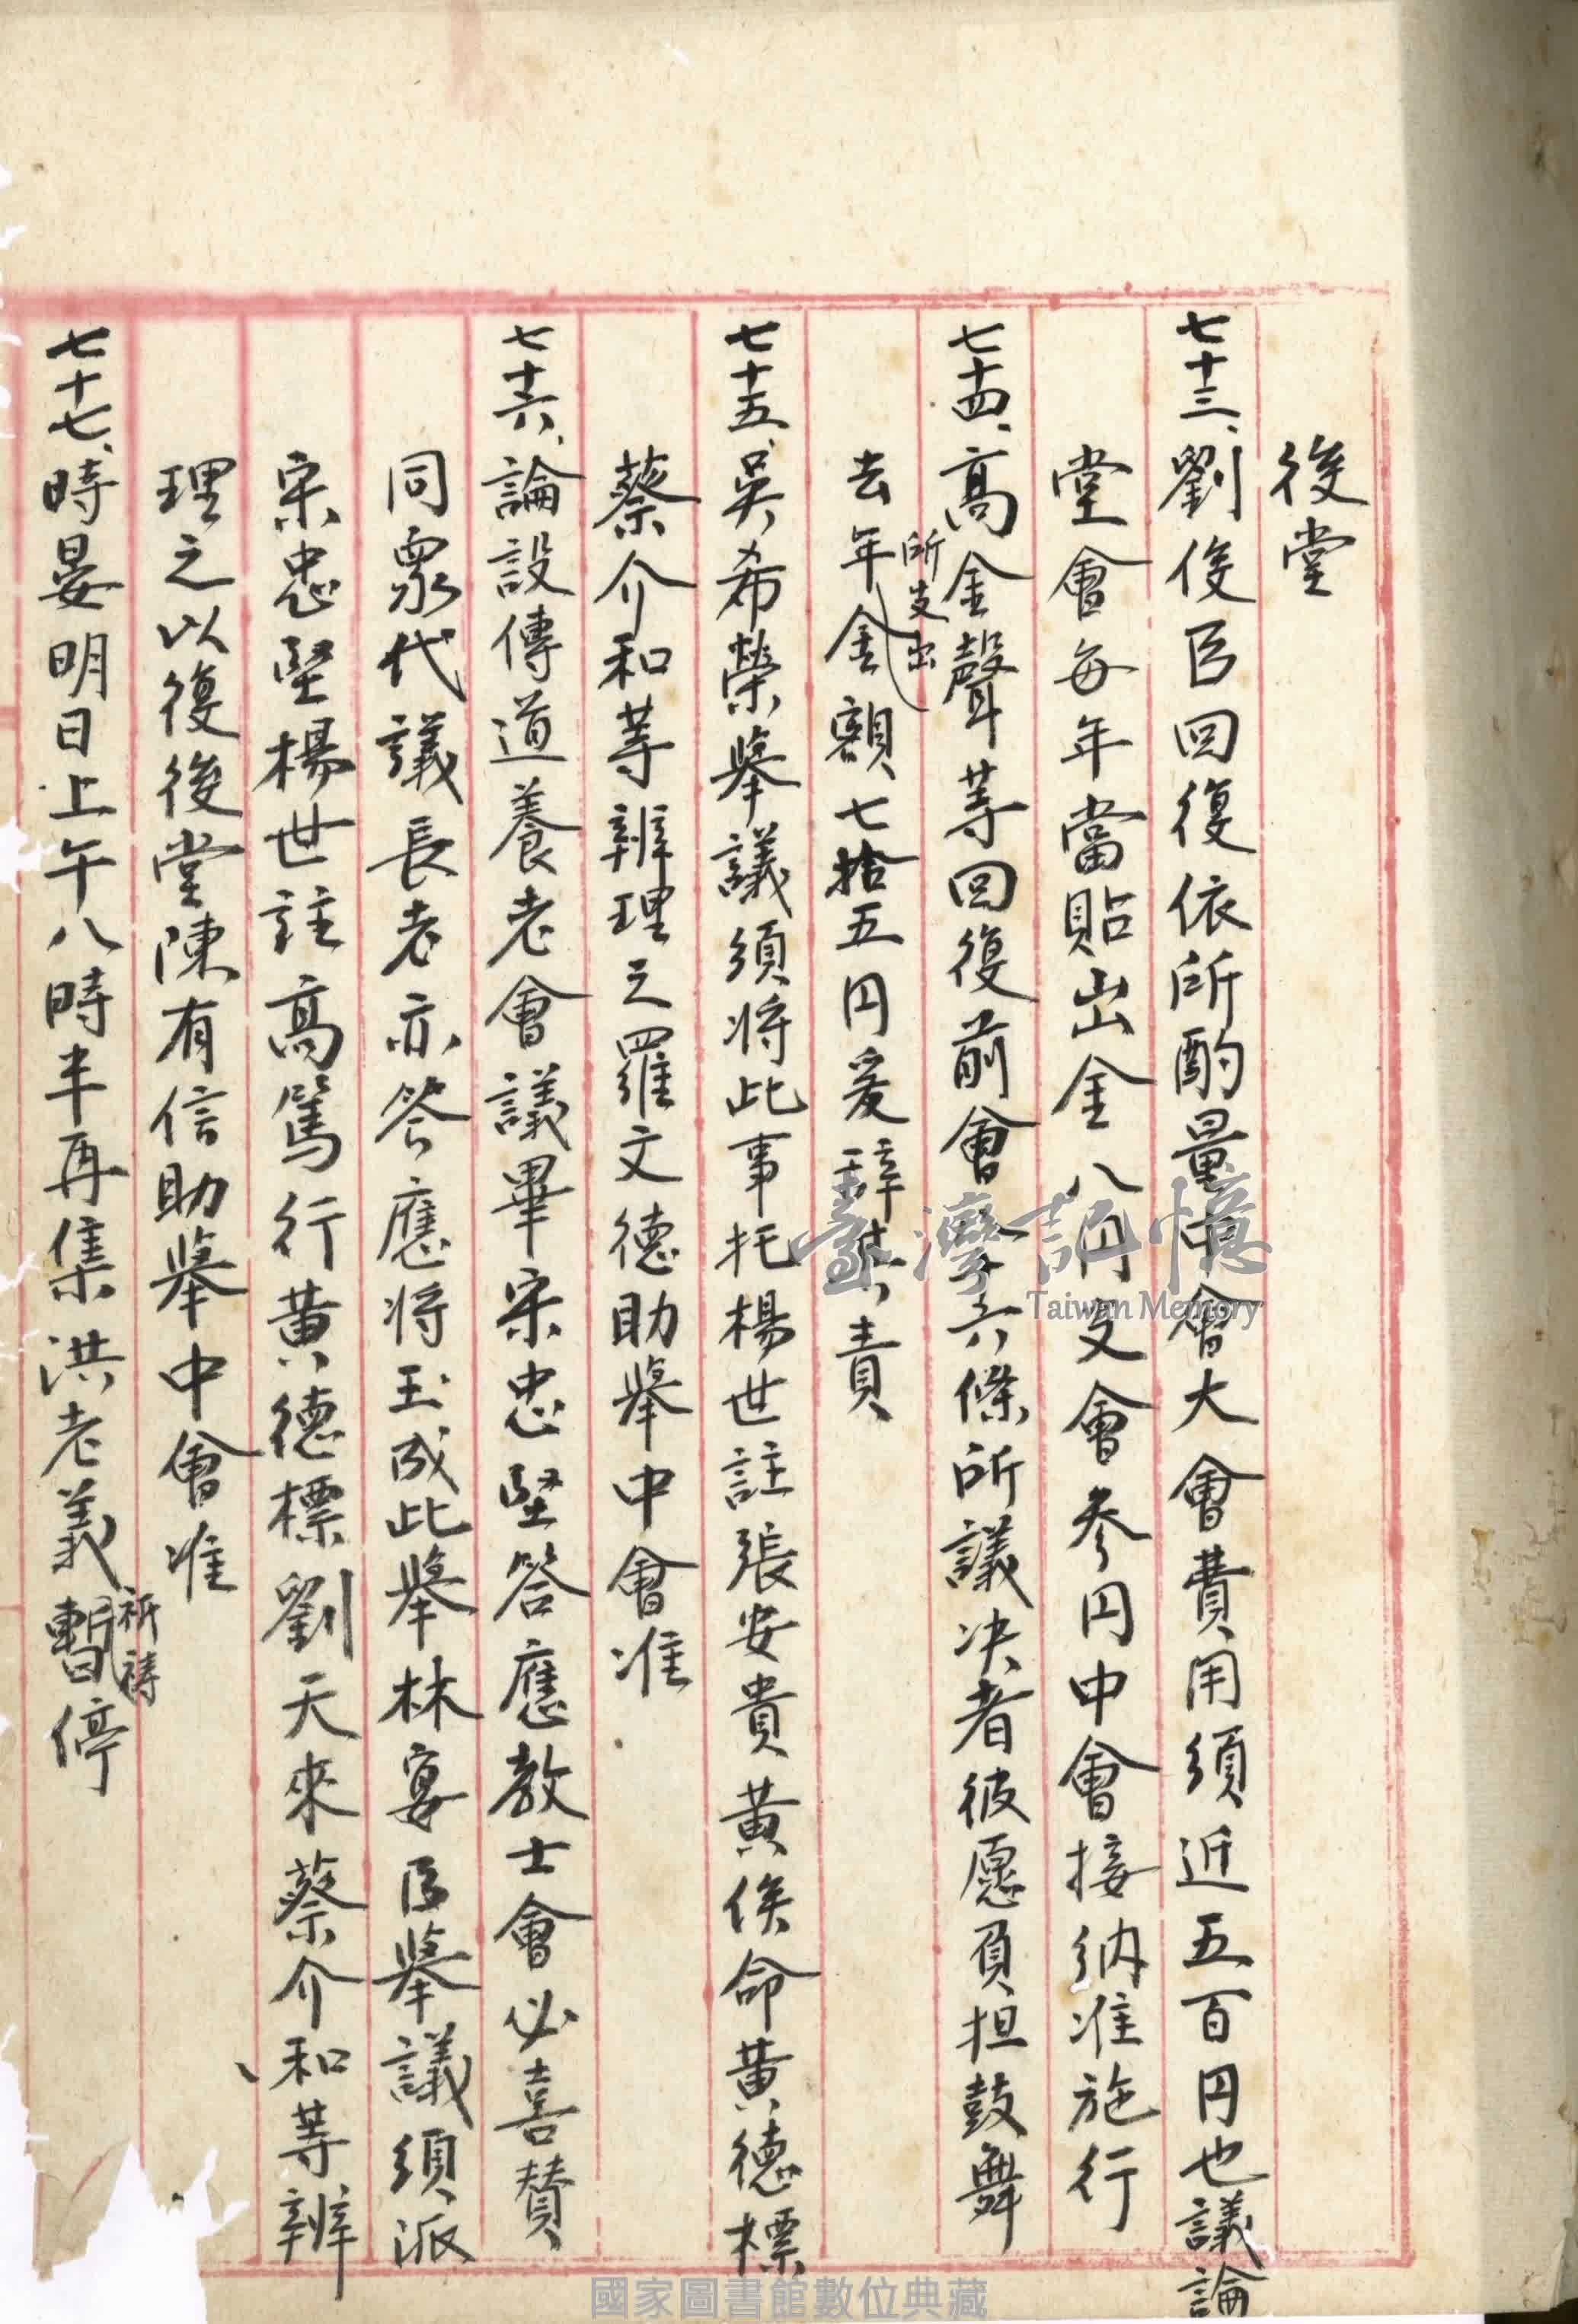 後堂
七十三、劉俊臣回復依所酌量中會大會費用須近五百円也議論
堂會每年當貼出金八円支會参円中會接納准施行
七十四、高金聲等回復前會六條所議决者彼愿負担鼓舞
去年所支出金額七拾五円爰辞其責
七十五、吳希榮舉議須将此事托楊世註張安貴黃俟命黃德標
蔡介和等辦理之羅文德助舉中會准
七十六、論設傳道養老會議畢宋忠堅答應教士會必喜賛
同眾代議長老亦答應将玉成此舉林宴臣舉議須派
宋忠堅楊世註高篤行黃德標劉天來蔡介和等辦
理之以復後堂陳有信助舉中會准
七十七、時晏明日上午八時半再集洪老義祈禱暫停
臺灣記憶
Taiwan Memory
國家圖書館數位典藏